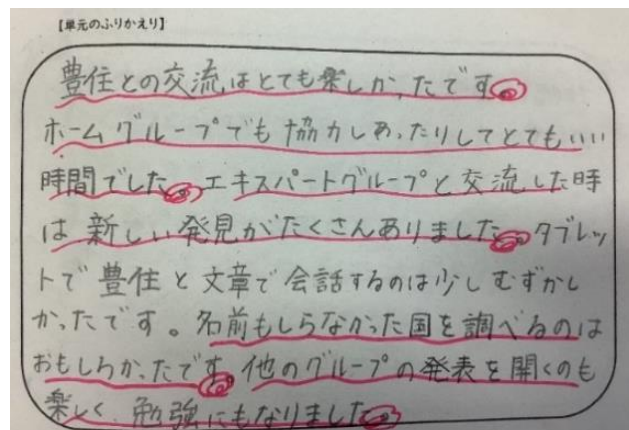 【単元のふりかえり】
豊住との交流はとても楽しかったです。
ホームグループでも協力しあったりしてとてもいい
時間でした。エキスパートグループと交流した時
は新しい発見がたくさんありました。タブレッ
トで豊住と文章で会話するのは少しむずかし
かったです。名前もしらなかった国を調べるのは
おもしろかったです。他のグループの発表を開くのも
楽しく、勉強にもなりました。